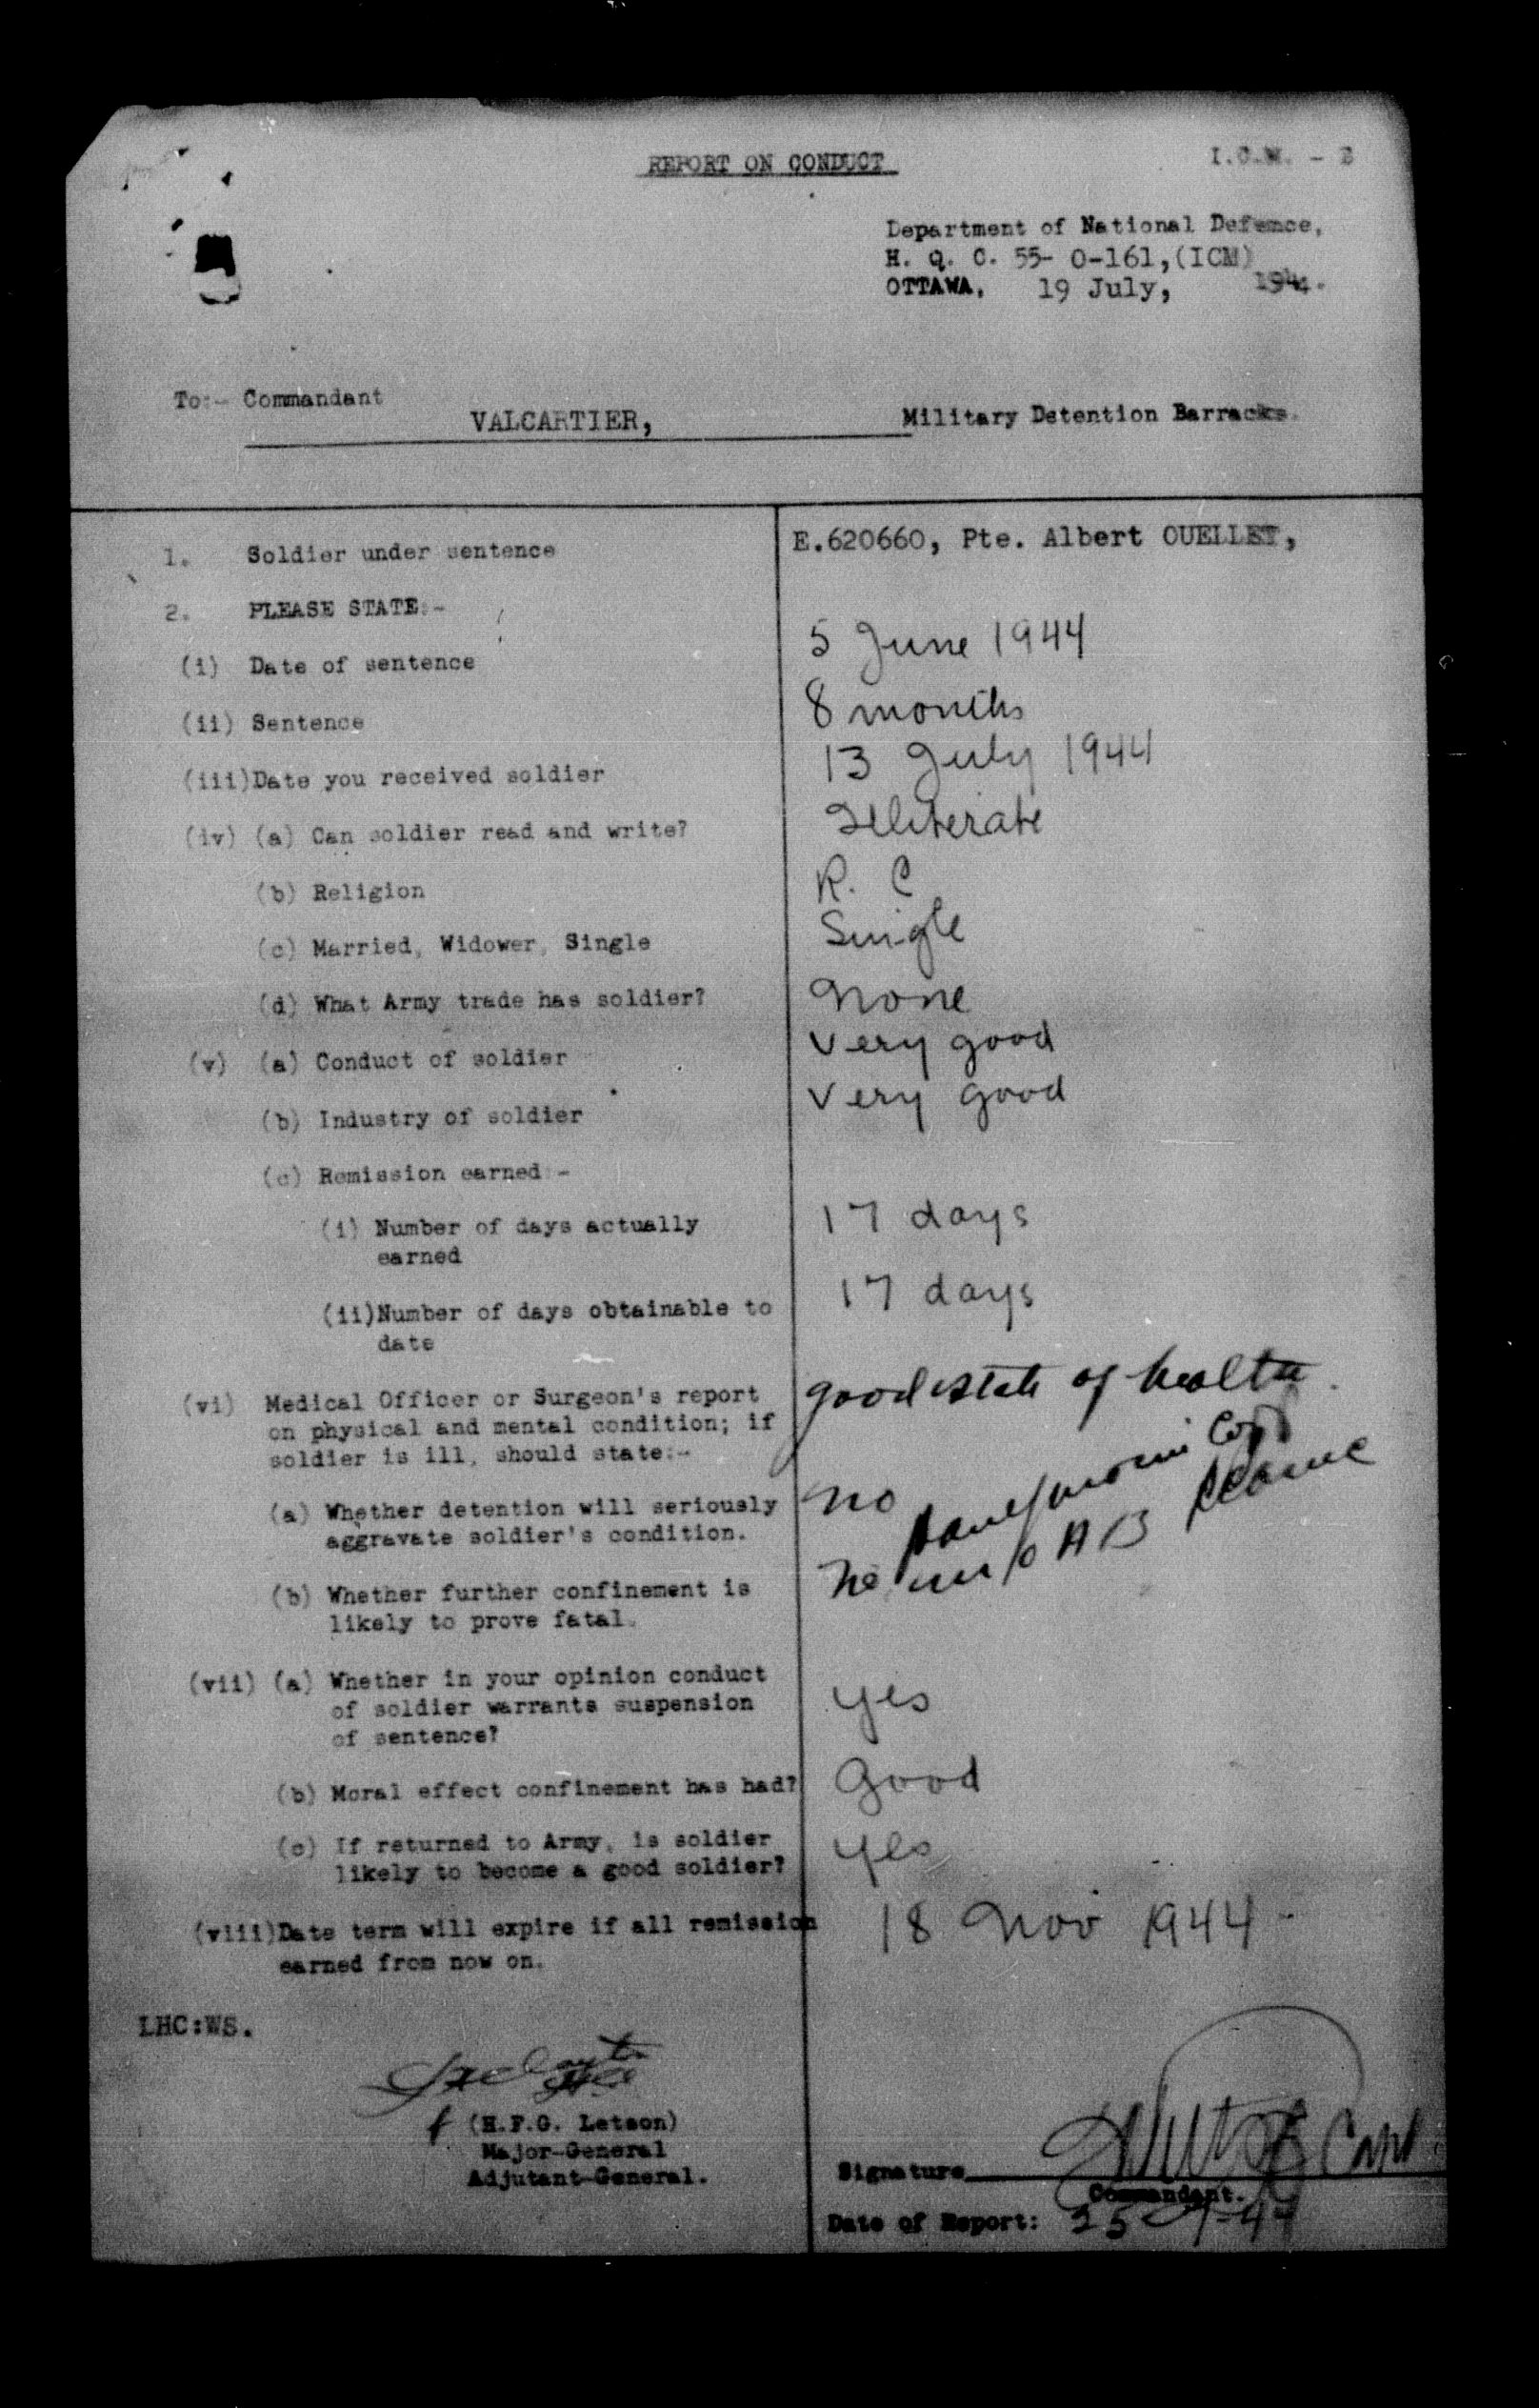 REPORT ON CONDUCT
I.C.M. - E
Department of National Defence,
H. Q. C. 55- 0-161,(ICM)
OTTAWA, 19 July, 1944.
To:- Commandant
VALCARTIER, Military Detention Barracks.
1. Soldier under sentence E.620660, Pte. Albert OUELLET,
2. PLEASE STATE:-
(i) Date of sentence 5 June 1944
(ii) Sentence 8 months
(iii)Date you received soldier 13 July 1944
(iv) (a) Can soldier read and write? Illiterate
(b) Religion R. C
(c) Married, Widower, Single Single
(d) What Army trade has soldier? None
(v) (a) Conduct of soldier Very good
(b) Industry of soldier Very good
(c) Remission earned:-
(i) Number of days actually 17 days
earned
(ii)Number of days obtainable to 17 days
date
(vi) Medical Officer or Surgeon's report good state of health.
on physical and mental condition; if
soldier is ill, should state:-
(a) Whether detention will seriously no
aggravate soldier's condition.
(b) Whether further confinement is no
likely to prove fatal.
(vii) (a) Whether in your opinion conduct yes
of soldier warrants suspension
of sentence?
(b) Moral effect confinement has had? Good
(c) If returned to Army, is soldier yes
likely to become a good soldier?
(viii)Date term will expire if all remission 18 Nov 1944
earned from now on.
LHC:WS.
(H.F.G. Letson)
Major-General
Adjutant-General.
Signature Capt
Commandant.
Date of Report: 25-7-44